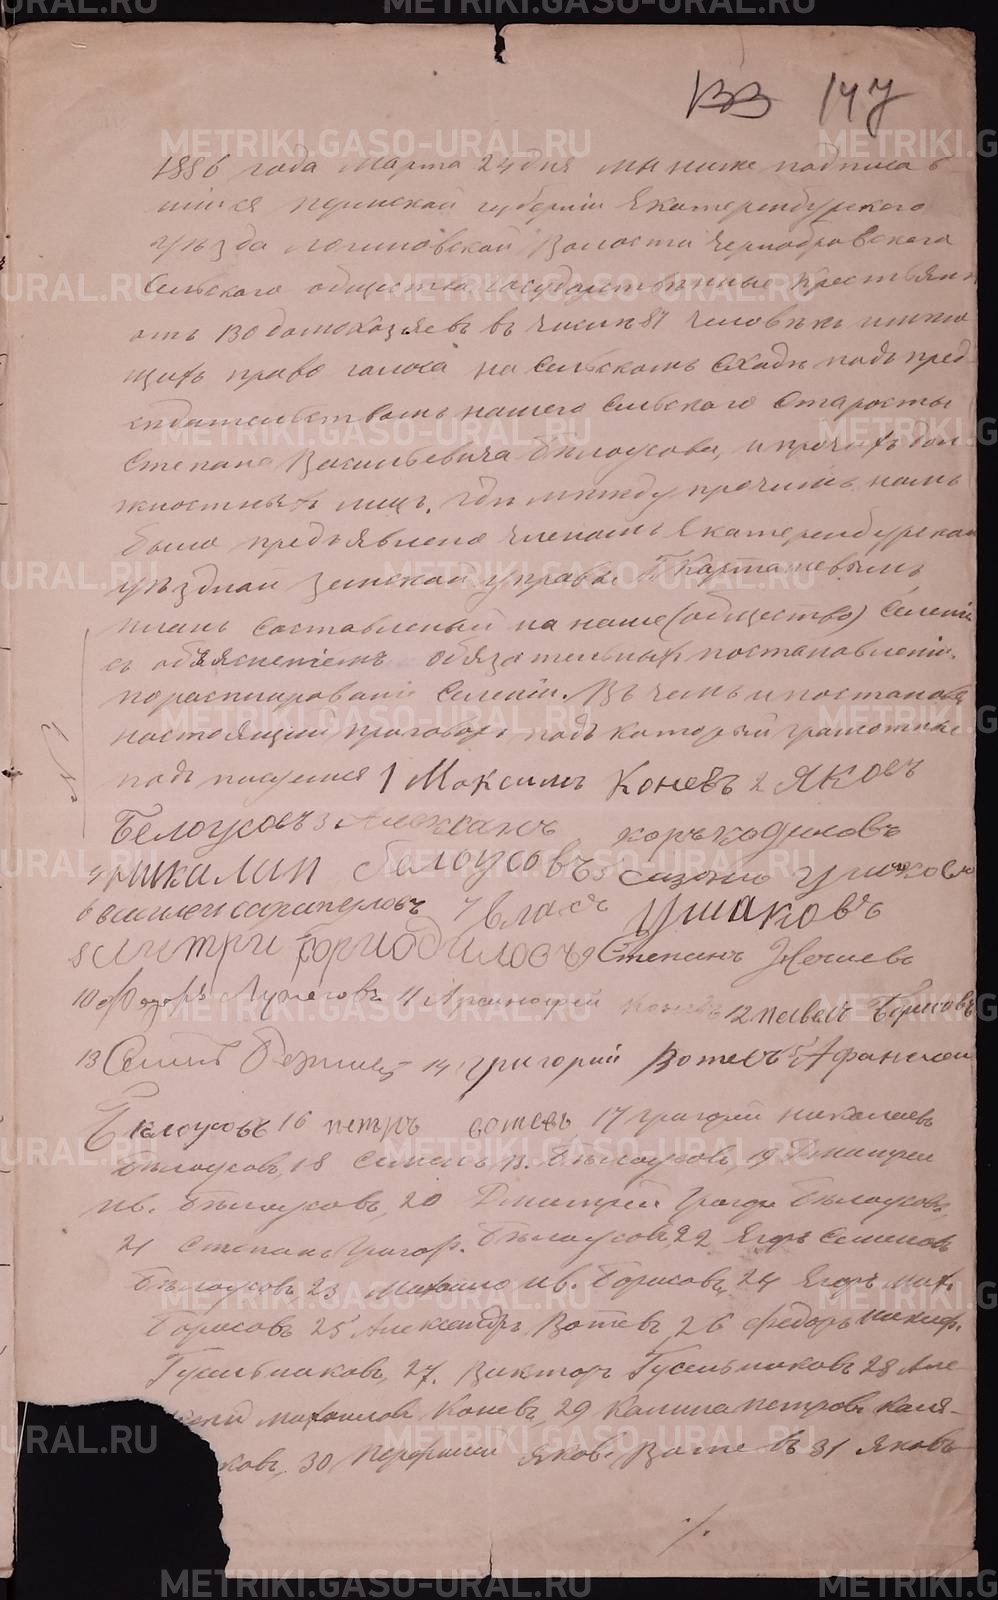 133 147
1886 года Марта 24 дня мы ниже подписав
шіеся Пермской губерніи Екатеринбургскаго
уѣзда Логиновской Волости Чернобровскаго
Сельскаго общества государственные крестьяне
отъ 130 домохозяевъ въ числѣ 87 человѣкъ имѣю
щихъ право голоса на сельскомъ сходѣ подъ пред
сѣдательствомъ нашего Сельскаго Старосты
Степана Васильевича Бѣлоусова, и прочихъ дол
жностныхъ лицъ, гдѣ между прочимъ намъ
было предъявлено членомъ Екатеринбургской
уѣздной земской управы Г. Карташевымъ
планъ составленый на наше (общество) Селеніе
съ объясненіемъ обязательныхъ постановленій
по распланированію Селеній. Въ чемъ и постанови
настоящій приговоръ подъ который грамотные
подъ писуемся 1 Максимъ Коневъ 2 Яковъ
Белоусовъ 3 Александръ Коръкодиновъ
4 Николай Белоусовъ 5 Сазонъ Ушаковъ
6 василеи сарапуловъ 7 власъ Ушаковъ
8 Дмитри 9 Степанъ
10 Федоръ 11 Коневъ 12 павелъ Борисовъ
13 14 Григорий Вотевъ 15 Афанасеи
Белоусовъ 16 петръ вотевъ 17 григорій николаевъ
Бѣлоусовъ, 18 Семенъ Я. Бѣлоусовъ, 19 Дмитрій
Ив. Бѣлоусовъ, 20 Дмитрій Григор Бѣлоусовъ,
21 Степанъ Григор. Бѣлоусовъ, 22 Егоръ Семеновъ
Бѣлоусовъ, 23 Михаило Ив. Борисовъ, 24 Егоръ Мих.
Борисовъ 25 Александръ Вотевъ, 26 Федоръ Никиф.
Гусельниковъ, 27. Викторъ Гусельниковъ 28 Але
ксѣй Михаиловъ Коневъ, 29 Калина Петровъ Каля-
ковъ, 30 Перфилей Яков. Вотевъ 31 Яковъ
./.
METRIKI.GASO-URAL.RU